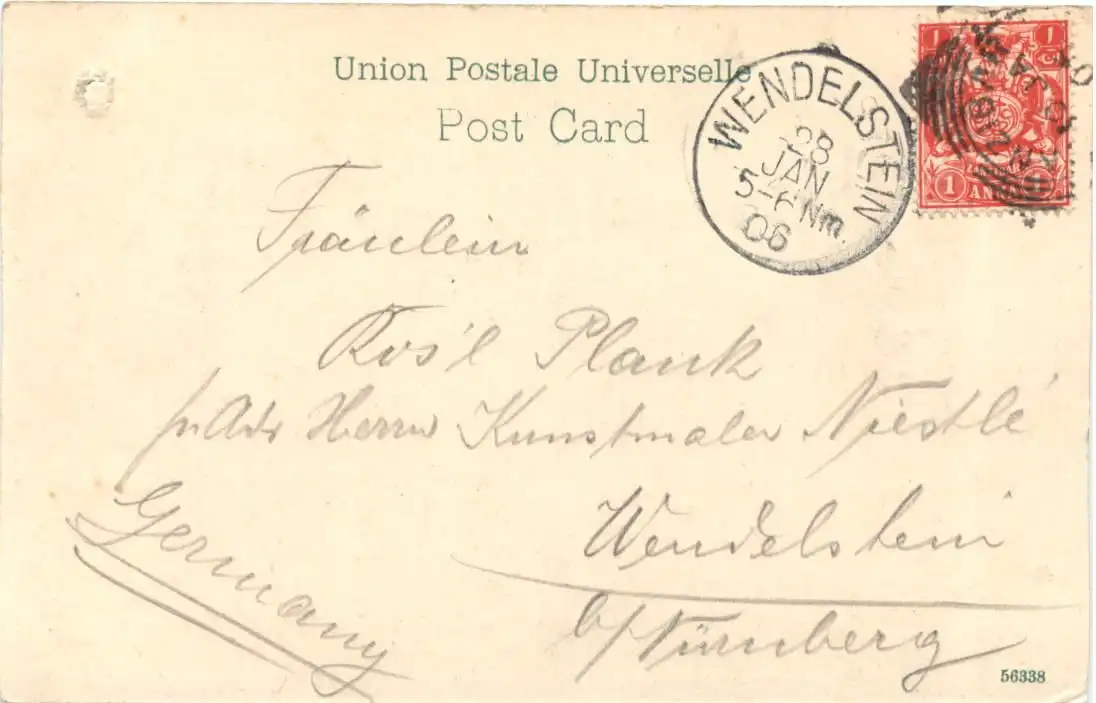 Union Postale Universelle
Post Card
WENDELSTEIN
28
JAN
5-6 Nm.
06
1 1
1 ANNA
Fräulein
Ros'l Plank
pr. Adr Herrn Kunstmaler Niestlé
Wendelstein
b/Nürnberg
Germany
56338